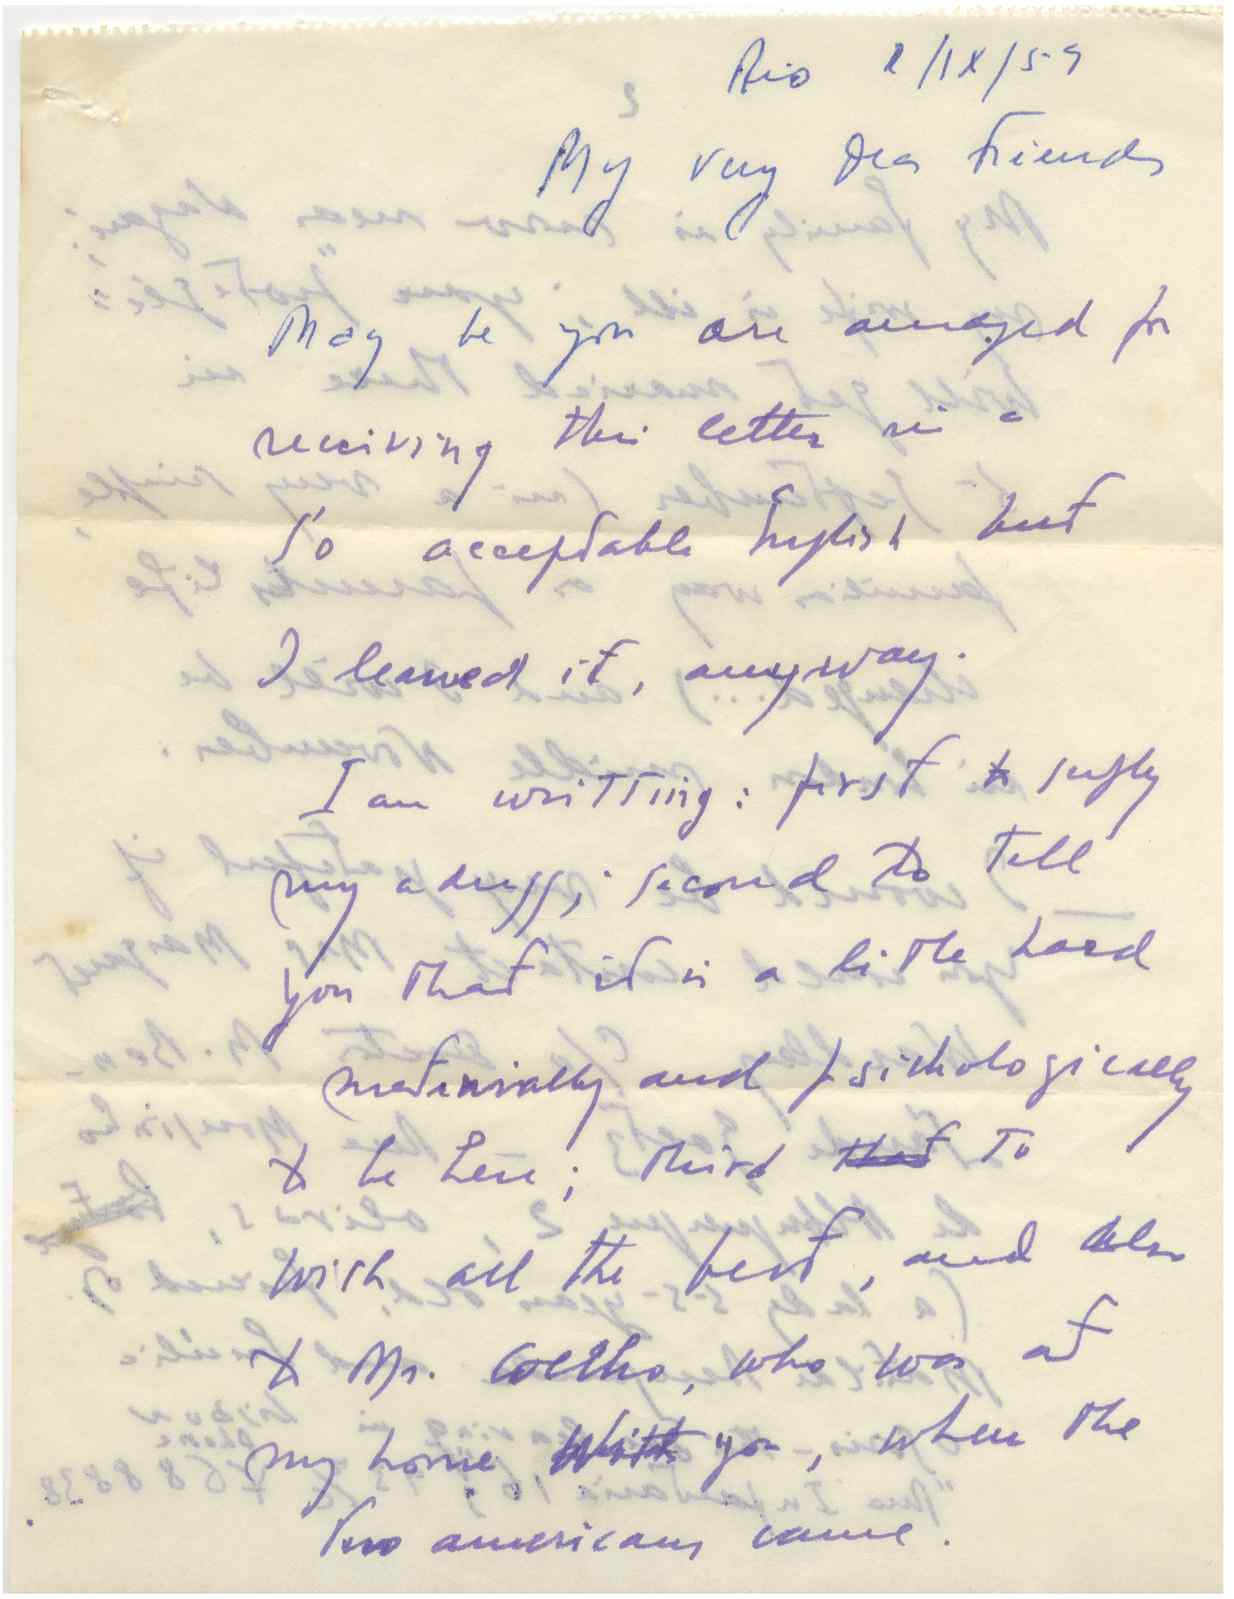 Rio 2/IX/59
My very dear friends
May be you are amazed for
receiving this letter in a
so acceptable English but
I learned it, anyway.
I am writting: first to supply
my adress; second to tell
you that it is a little hard
materially and psichologically
to be here; third that to
wish all the best, and also
to Mr. Coelho, who was at
my home with you, when the
two americans came.